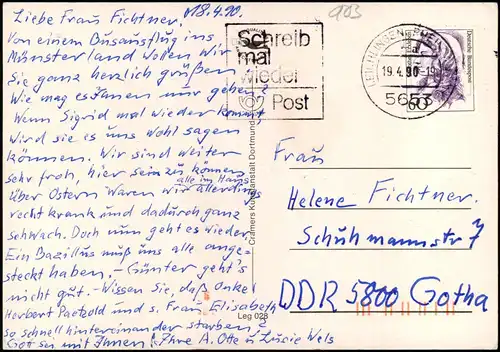 18.4.90.
903
Liebe Frau Fichtner,
Von einem Busausflug ins
Münsterland wollen wir
Sie ganz herzlich grüßen.
Wie mag es Ihnen nur gehen?
Wenn Sigrid mal wieder kommt
wird sie es uns wohl sagen
können. Wir sind weiter
sehr froh, hier sein zu können
über Ostern waren wir alle im Haus allerdings
recht krank und dadurch ganz
schwach. Doch nun geht es wieder.
Ein Bazillus muß uns alle ange-
steckt haben. – Günter geht's
nicht gut. – Wissen Sie, daß Onkel
Herbert und s. Frau Elisabeth
so schnell hintereinander starben?
Gott sei mit Ihnen! Ihre A. Otte u Luscie Wels
Schreib
mal
wieder
Post
LEICHLINGEN, RHEINL
19.4.90-19
5653
Deutsche Bundespost
60
Cramers Kunstanstalt Dortmund
Leg 028
Frau
Helene Fichtner
Schuhmannstr 7
DDR 5800 Gotha